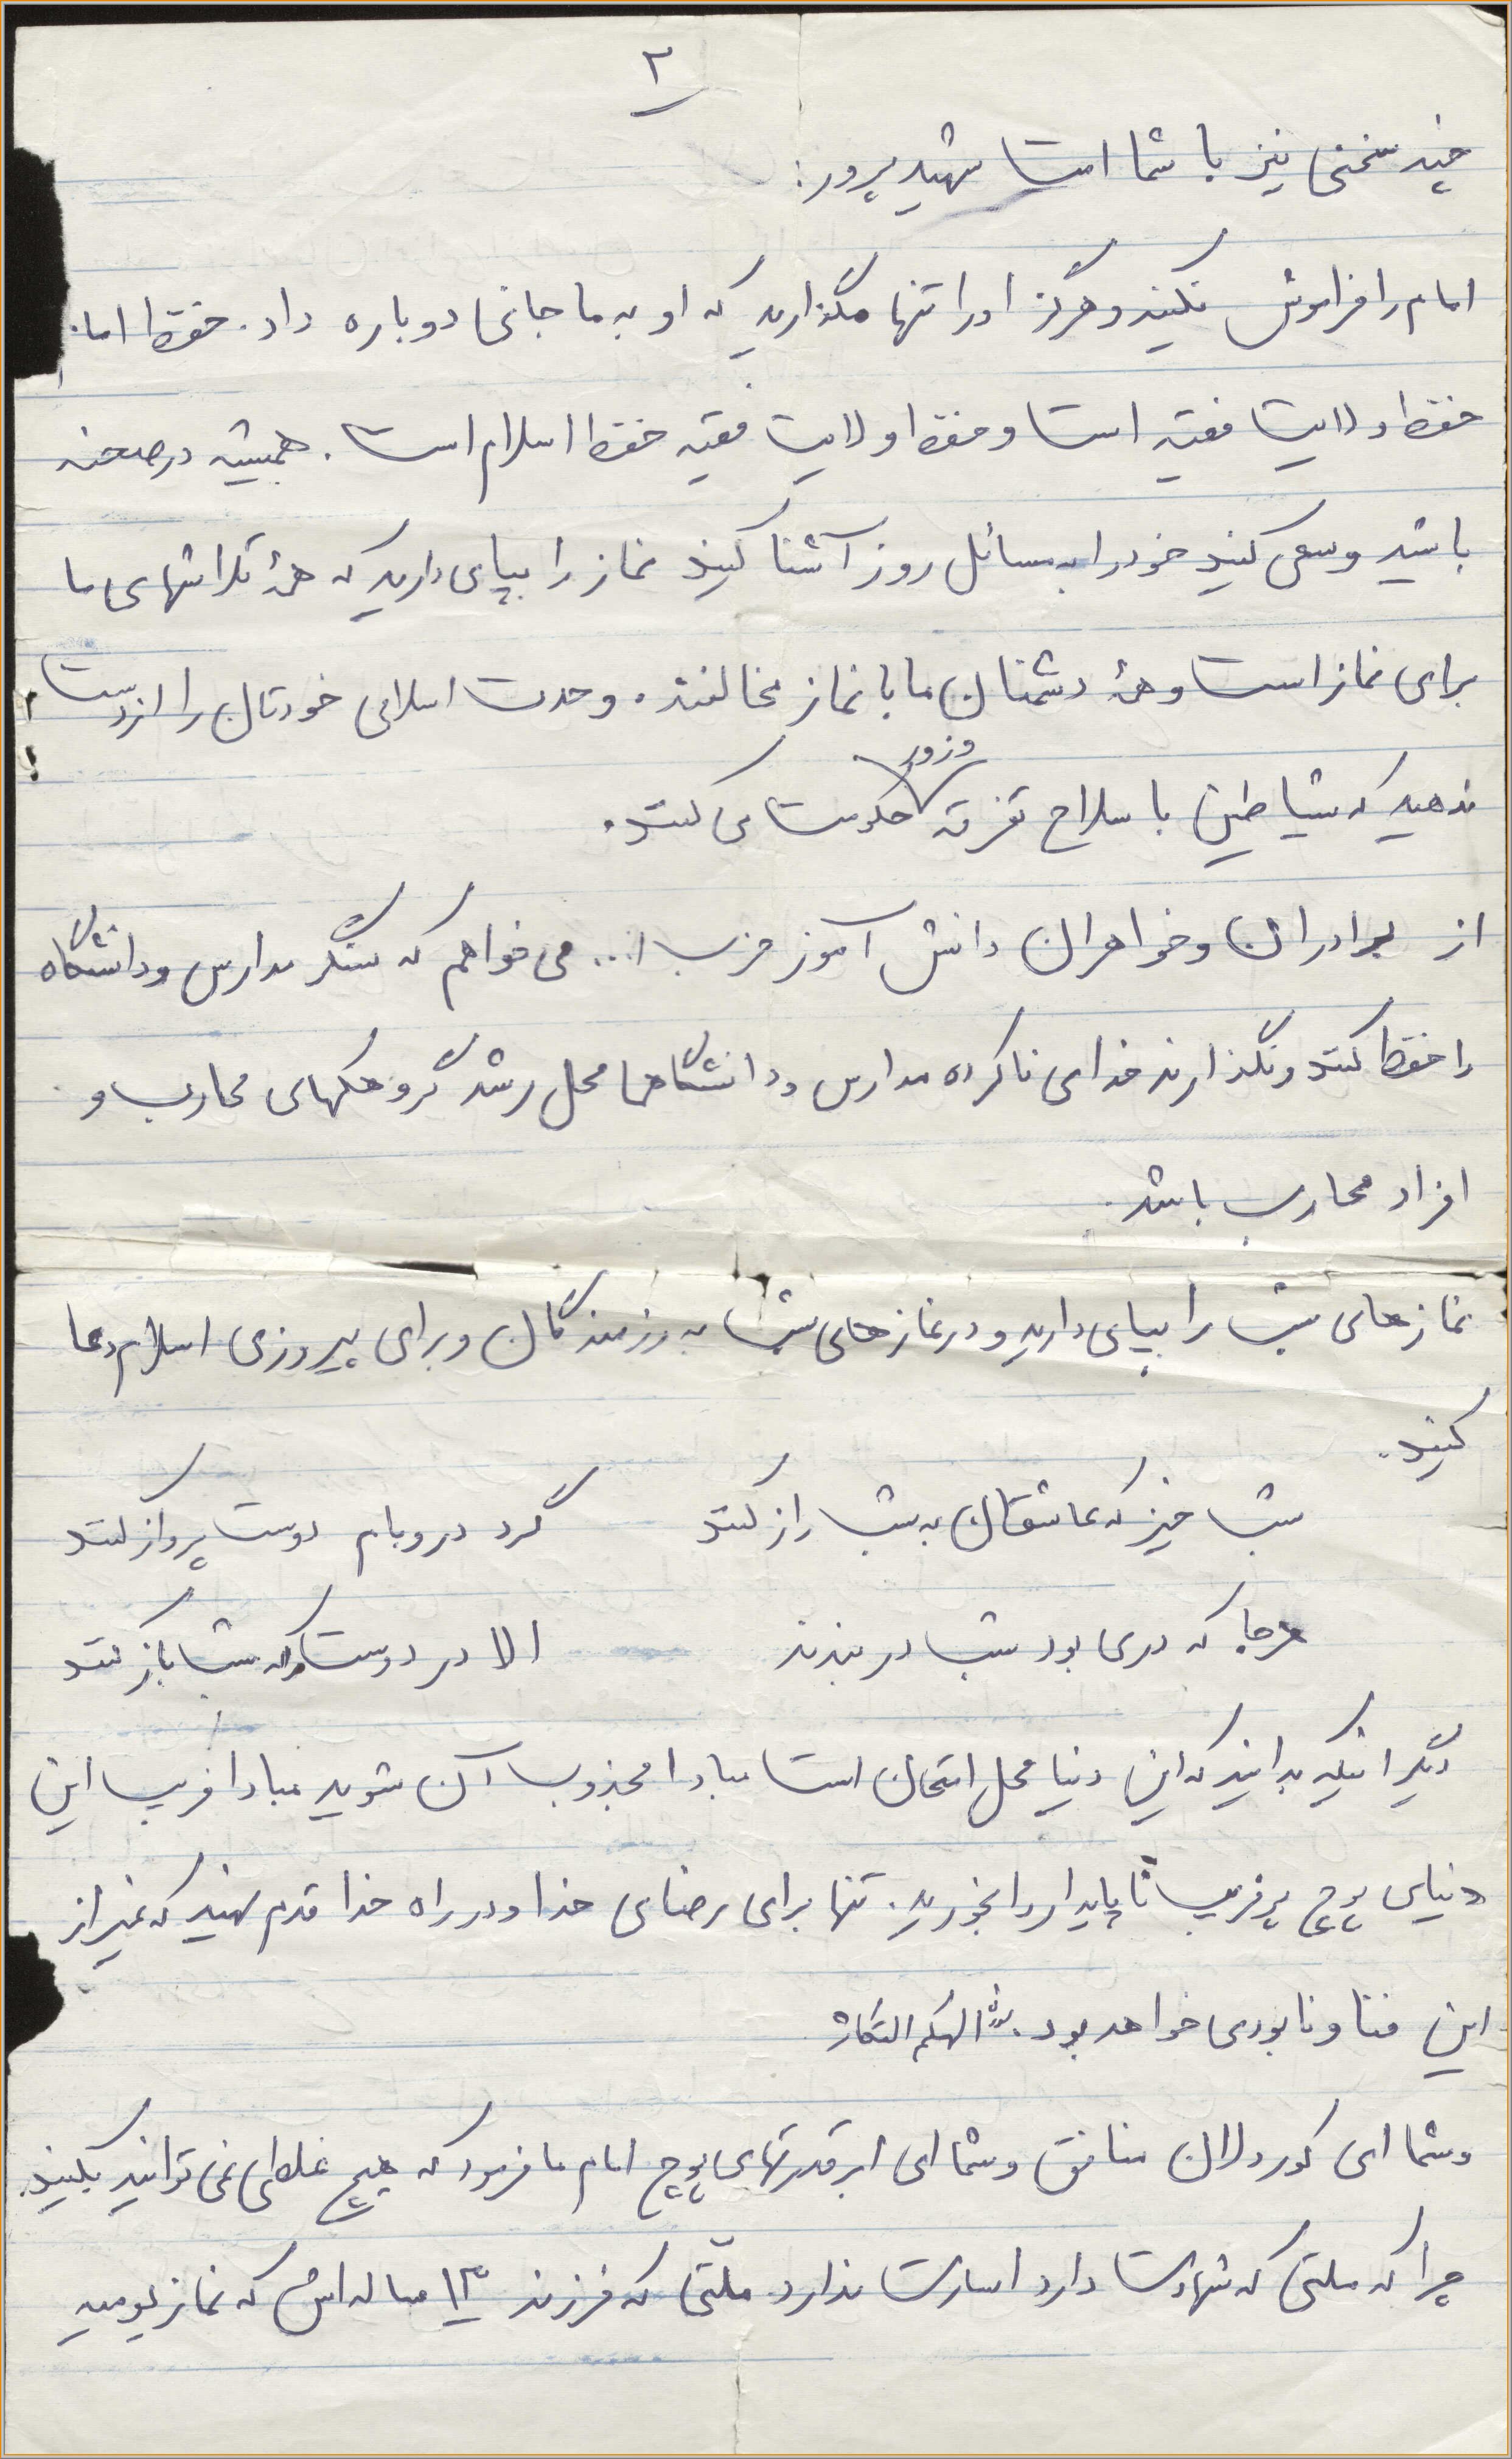 ۲
چند سخنی نیز با شما امت شهید پرور:
امام را فراموش نکنید و هرگز او را تنها مگذارید که او به ما جانی دوباره داد. حفظ امام
حفظ ولایت فقیه است و حفظ ولایت فقیه حفظ اسلام است. همیشه در صحنه
باشید و سعی کنید خود را به مسائل روز آشنا کنید نماز را بپای دارید که همهٔ تلاشهای ما
برای نماز است و همهٔ دشمنان ما با نماز مخالفند. وحدت اسلامی خودتان را از دست
ندهید که شیاطین با سلاح تفرقه وزور حکومت می کنند.
از برادران و خواهران دانش آموز حزب ا... می خواهم که سنگر مدارس و دانشگاه
را حفظ کنند و نگذارند خدای ناکرده مدارس و دانشگاهها محل رشد گروهکهای محارب و
افراد محارب باشد.
نمازهای شب را بپای دارید و در نمازهای شب به رزمندگان و برای پیروزی اسلام دعا
کنید.
شب خیز که عاشقان به شب راز کنند گرد در و بام دوست پرواز کنند
هرجا که دری بود شب در بندند الا در دوست را که شب باز کنند
دیگر اینکه بدانید که این دنیا محل امتحان است مبادا مجذوب آن شوید مبادا فریب این
دنیای پوچ پر فریب ناپایدار را بخورید. تنها برای رضای خدا و در راه خدا قدم نهید که غیر از
این فنا و نابودی خواهد بود. الهکم التکاثر
و شما ای کوردلان منافق و شما ای ابرقدرتهای پوچ امام ما فرمود که هیچ غلطی نمی توانید بکنید.
چرا که ملتی که شهادت دارد اسارت ندارد. ملّتی که فرزند ۱۳ ساله اش که نماز یومیه